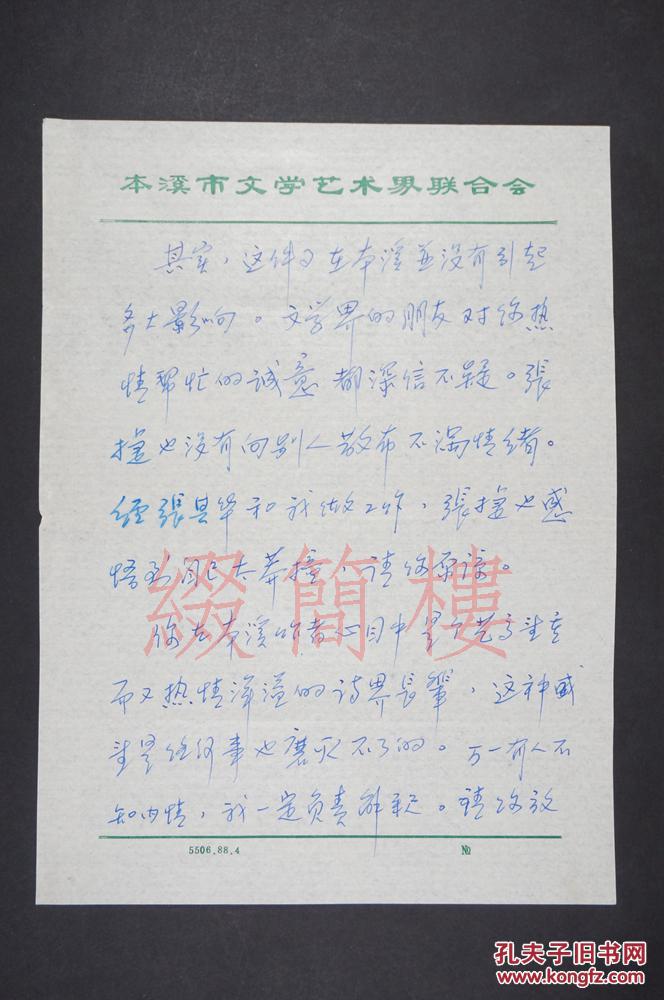 本溪市文学艺术界联合会
其实，这件事在本溪並没有引起
多大影响。文学界的朋友对你热
情帮忙的诚意都深信不疑。張
捷也没有向别人散布不满情绪。
经張其华和我做工作，張捷也感
悟到自己太莽撞，请你原谅。
你在本溪作者心目中是个德高望重
而又热情洋溢的诗界長輩，这种威
望是任何事也磨灭不了的。万一有人不
知内情，我一定负责解釋。請你放
綴簡樓
5506.88.4
№
孔夫子旧书网
www.kongfz.com